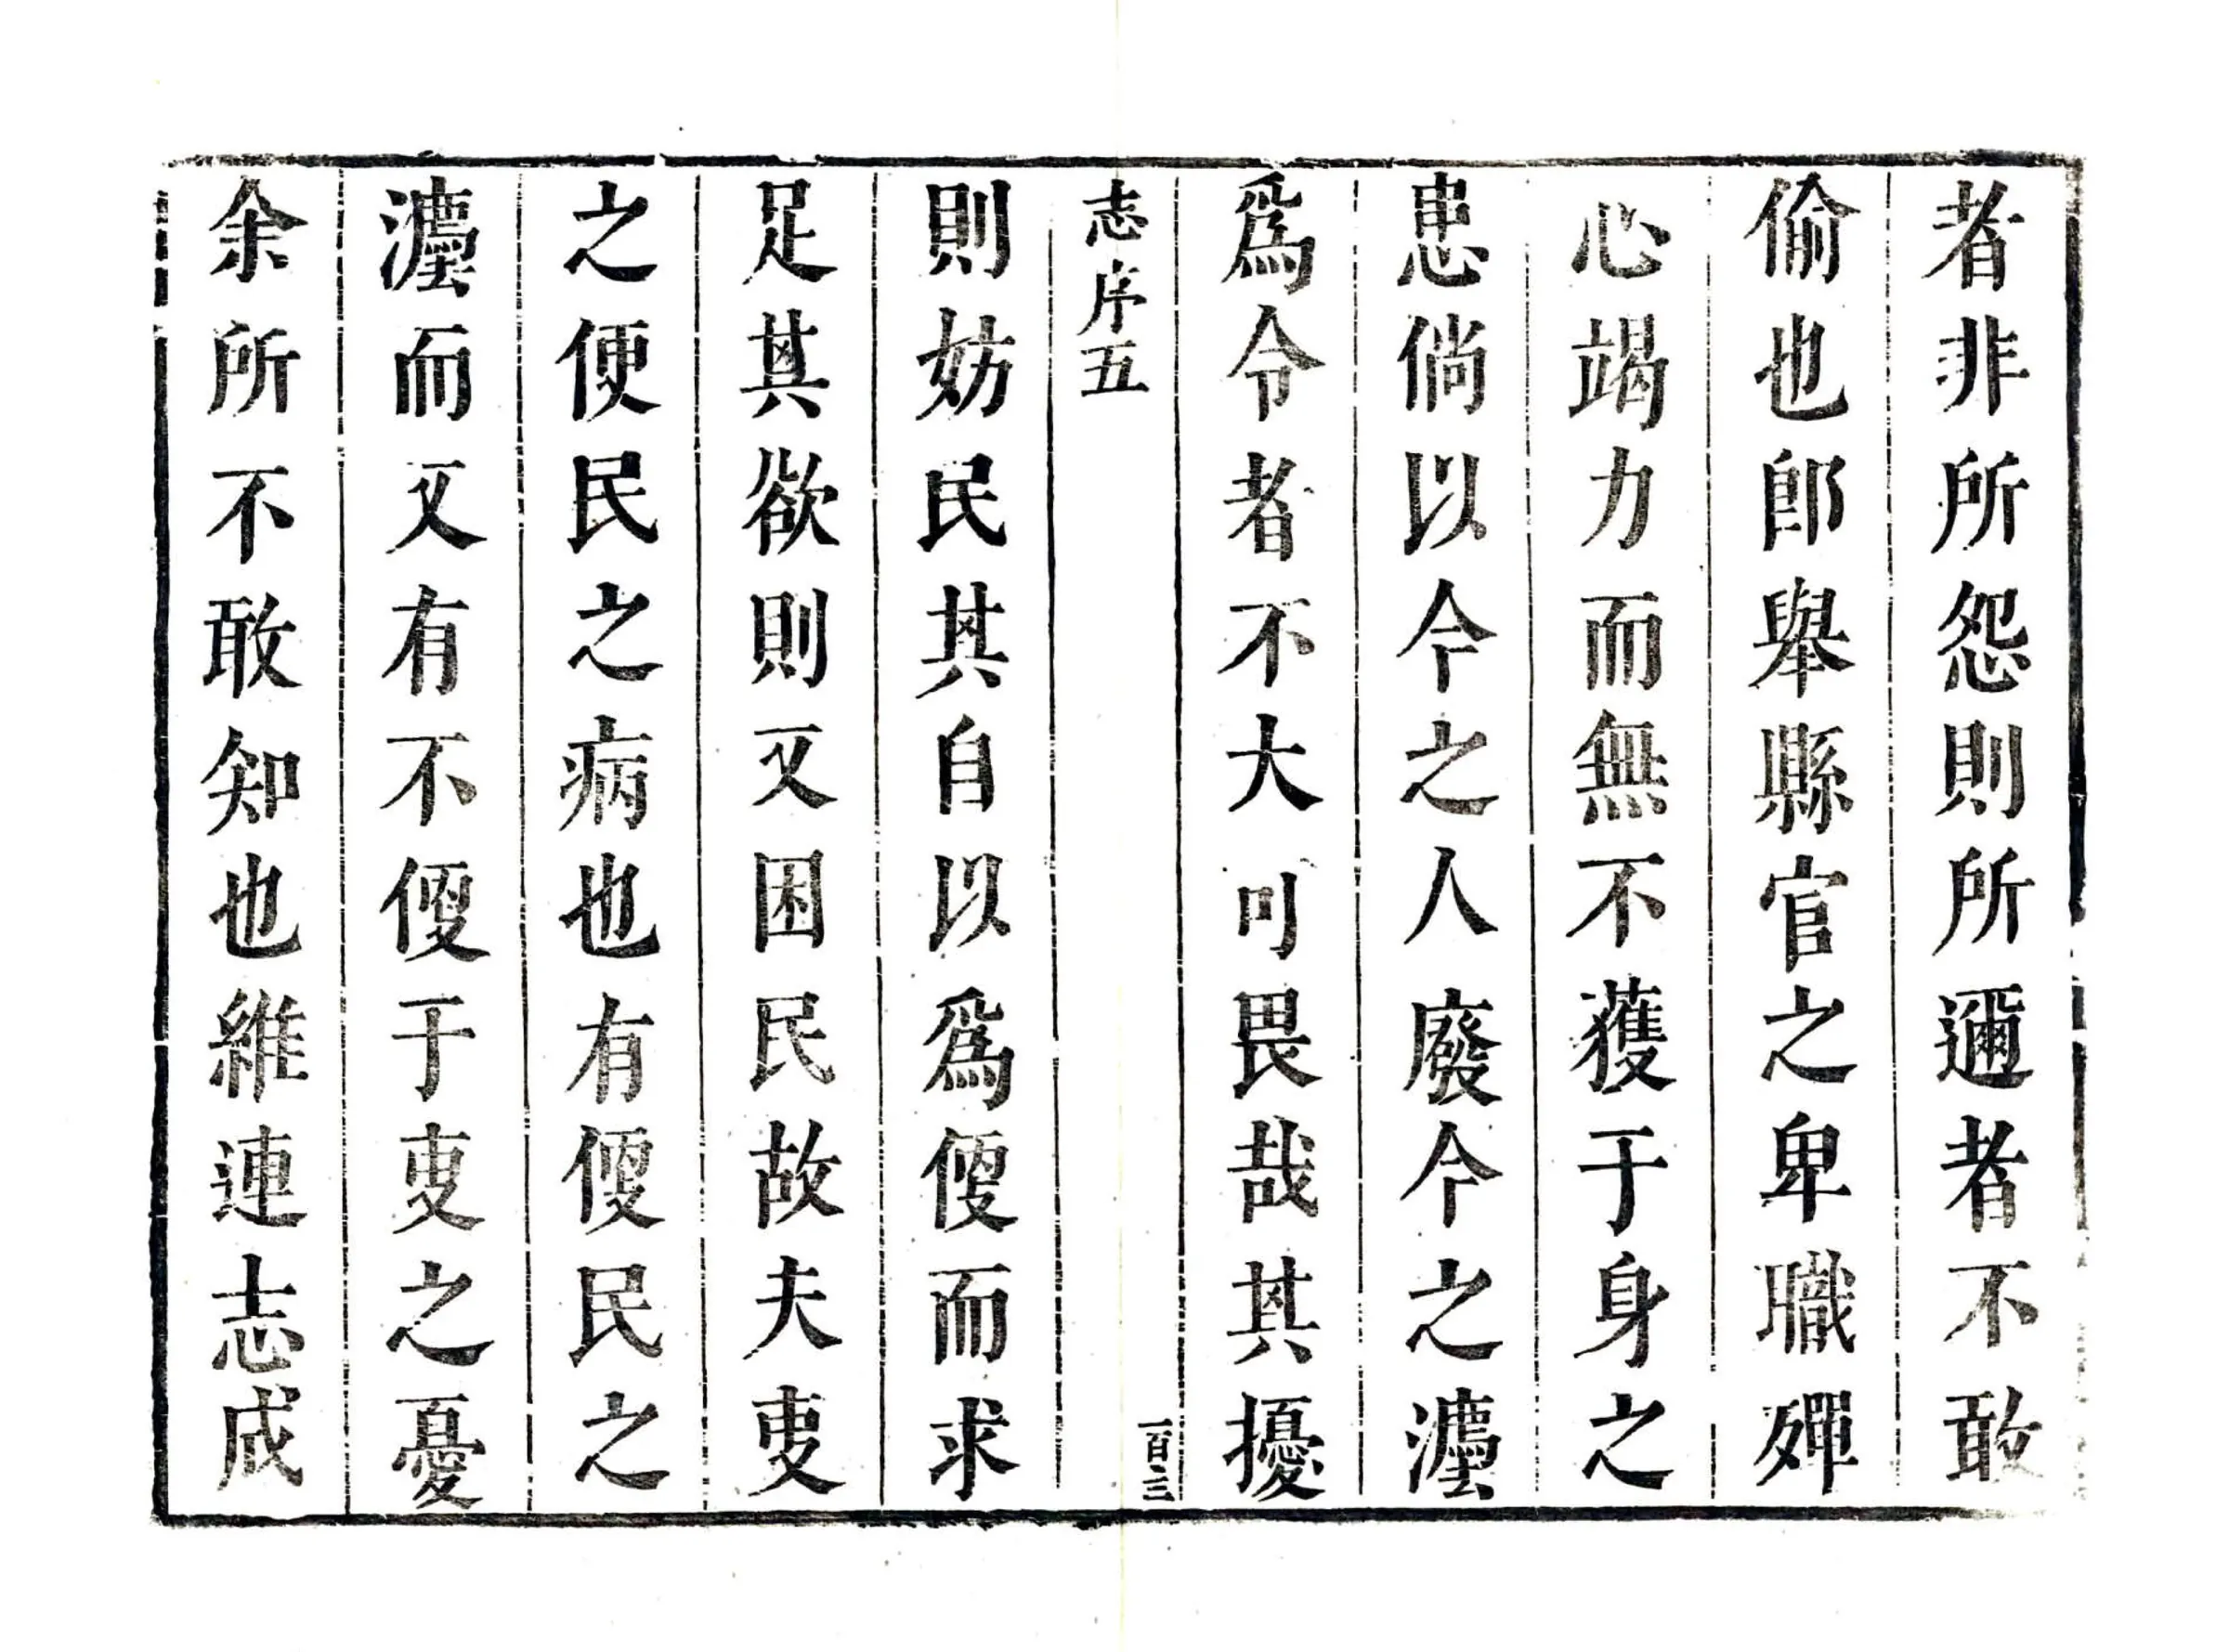 者非所怨則所邇者不敢
偷也郎舉縣官之卑職殫
心竭力而無不獲于身之
患倘以今之人廢今之灋
爲令者不大可畏哉其擾
志序五
一百三
則妨民其自以爲㑮而求
足其欲則又困民故夫吏
之便民之病也有㑮民之
灋而又有不㑮于吏之憂
余所不敢知也維連志成